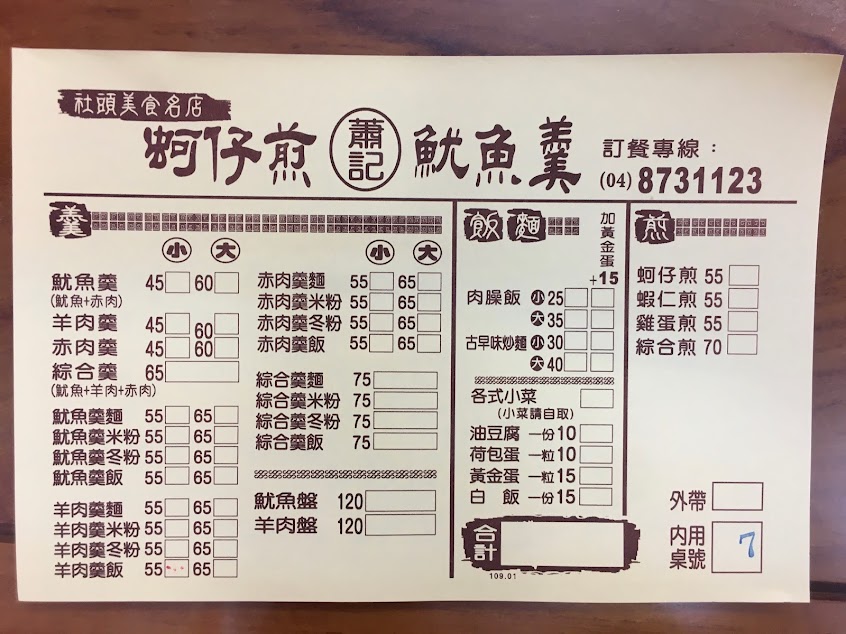 社頭美食名店
蚵仔煎 蕭記 魷魚羹
訂餐專線：
(04) 8731123
羹
小 大
魷魚羹 45 60
(魷魚+赤肉)
羊肉羹 45 60
赤肉羹 45 60
綜合羹 65
(魷魚+羊肉+赤肉)
魷魚羹麵 55 65
魷魚羹米粉 55 65
魷魚羹冬粉 55 65
魷魚羹飯 55 65
羊肉羹麵 55 65
羊肉羹米粉 55 65
羊肉羹冬粉 55 65
羊肉羹飯 55 65
小 大
赤肉羹麵 55 65
赤肉羹米粉 55 65
赤肉羹冬粉 55 65
赤肉羹飯 55 65
綜合羹麵 75
綜合羹米粉 75
綜合羹冬粉 75
綜合羹飯 75
魷魚盤 120
羊肉盤 120
飯麵
加黃金蛋+15
肉燥飯 小 25
大 35
古早味炒麵 小 30
大 40
各式小菜
(小菜請自取)
油豆腐 一份 10
荷包蛋 一粒 10
黃金蛋 一粒 15
白飯 一份 15
合計
109.01
煎
蚵仔煎 55
蝦仁煎 55
雞蛋煎 55
綜合煎 70
外帶
內用桌號 7